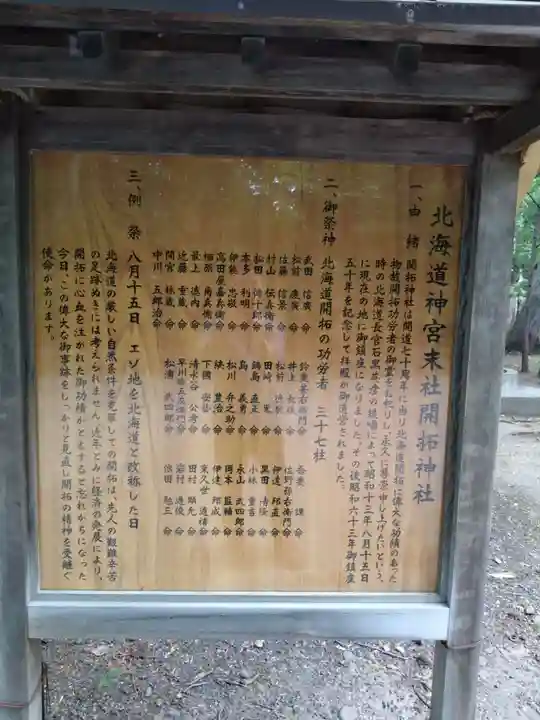 北海道神宮末社開拓神社
一、由緒 開拓神社は開道七十周年に当り北海道開拓に偉大な功績のあった
物故開拓功労者の御霊をお祀りし、永久に尊崇申し上げたいという、
時の北海道長官石黒英彦の提唱によって昭和十三年八月十五日
に現在の地に御鎮座になりました。その後昭和六十三年御鎮座
五十年を記念して拝殿が御造営されました。
二、御祭神 北海道開拓の功労者 三十七柱
武田 信廣命 鈴鹿甚右衛門命 吾妻 謙命
松前 慶廣命 井上 長秋命 佐野孫右衛門命
佐藤 信景命 松前 徳廣命 伊達 邦直命
村山 伝兵衛命 田崎 東命 黒田 清隆命
松田 伝十郎命 鍋島 直正命 小林 重吉命
本多 利明命 島 義勇命 永山 武四郎命
伊能 忠敬命 松川 弁之助命 岡本 監輔命
高田屋嘉兵衛命 续 豊治命 伊達 邦成命
栖原 角兵衛命 下國 安芸命 東久世 通禧命
最上 徳内命 清水谷 公考命 田村 顕允命
近藤 重蔵命 早川弥五左衛門命 岩村 通俊命
間宮 林蔵命 松浦 武四郎命 依田 勉三命
中川 五郎治命
三、例祭 八月十五日 エゾ地を北海道と改称した日
北海道の厳しい自然条件を克服しての開拓は、先人の艱難辛苦
の足跡ぬきには考えられません。近年とみに経済の発展により、
開拓に心血を注がれた御功績がともすると忘れがちになった
今日、この偉大な御事跡をしっかりと見直し開拓の精神を受継ぐ
使命があります。